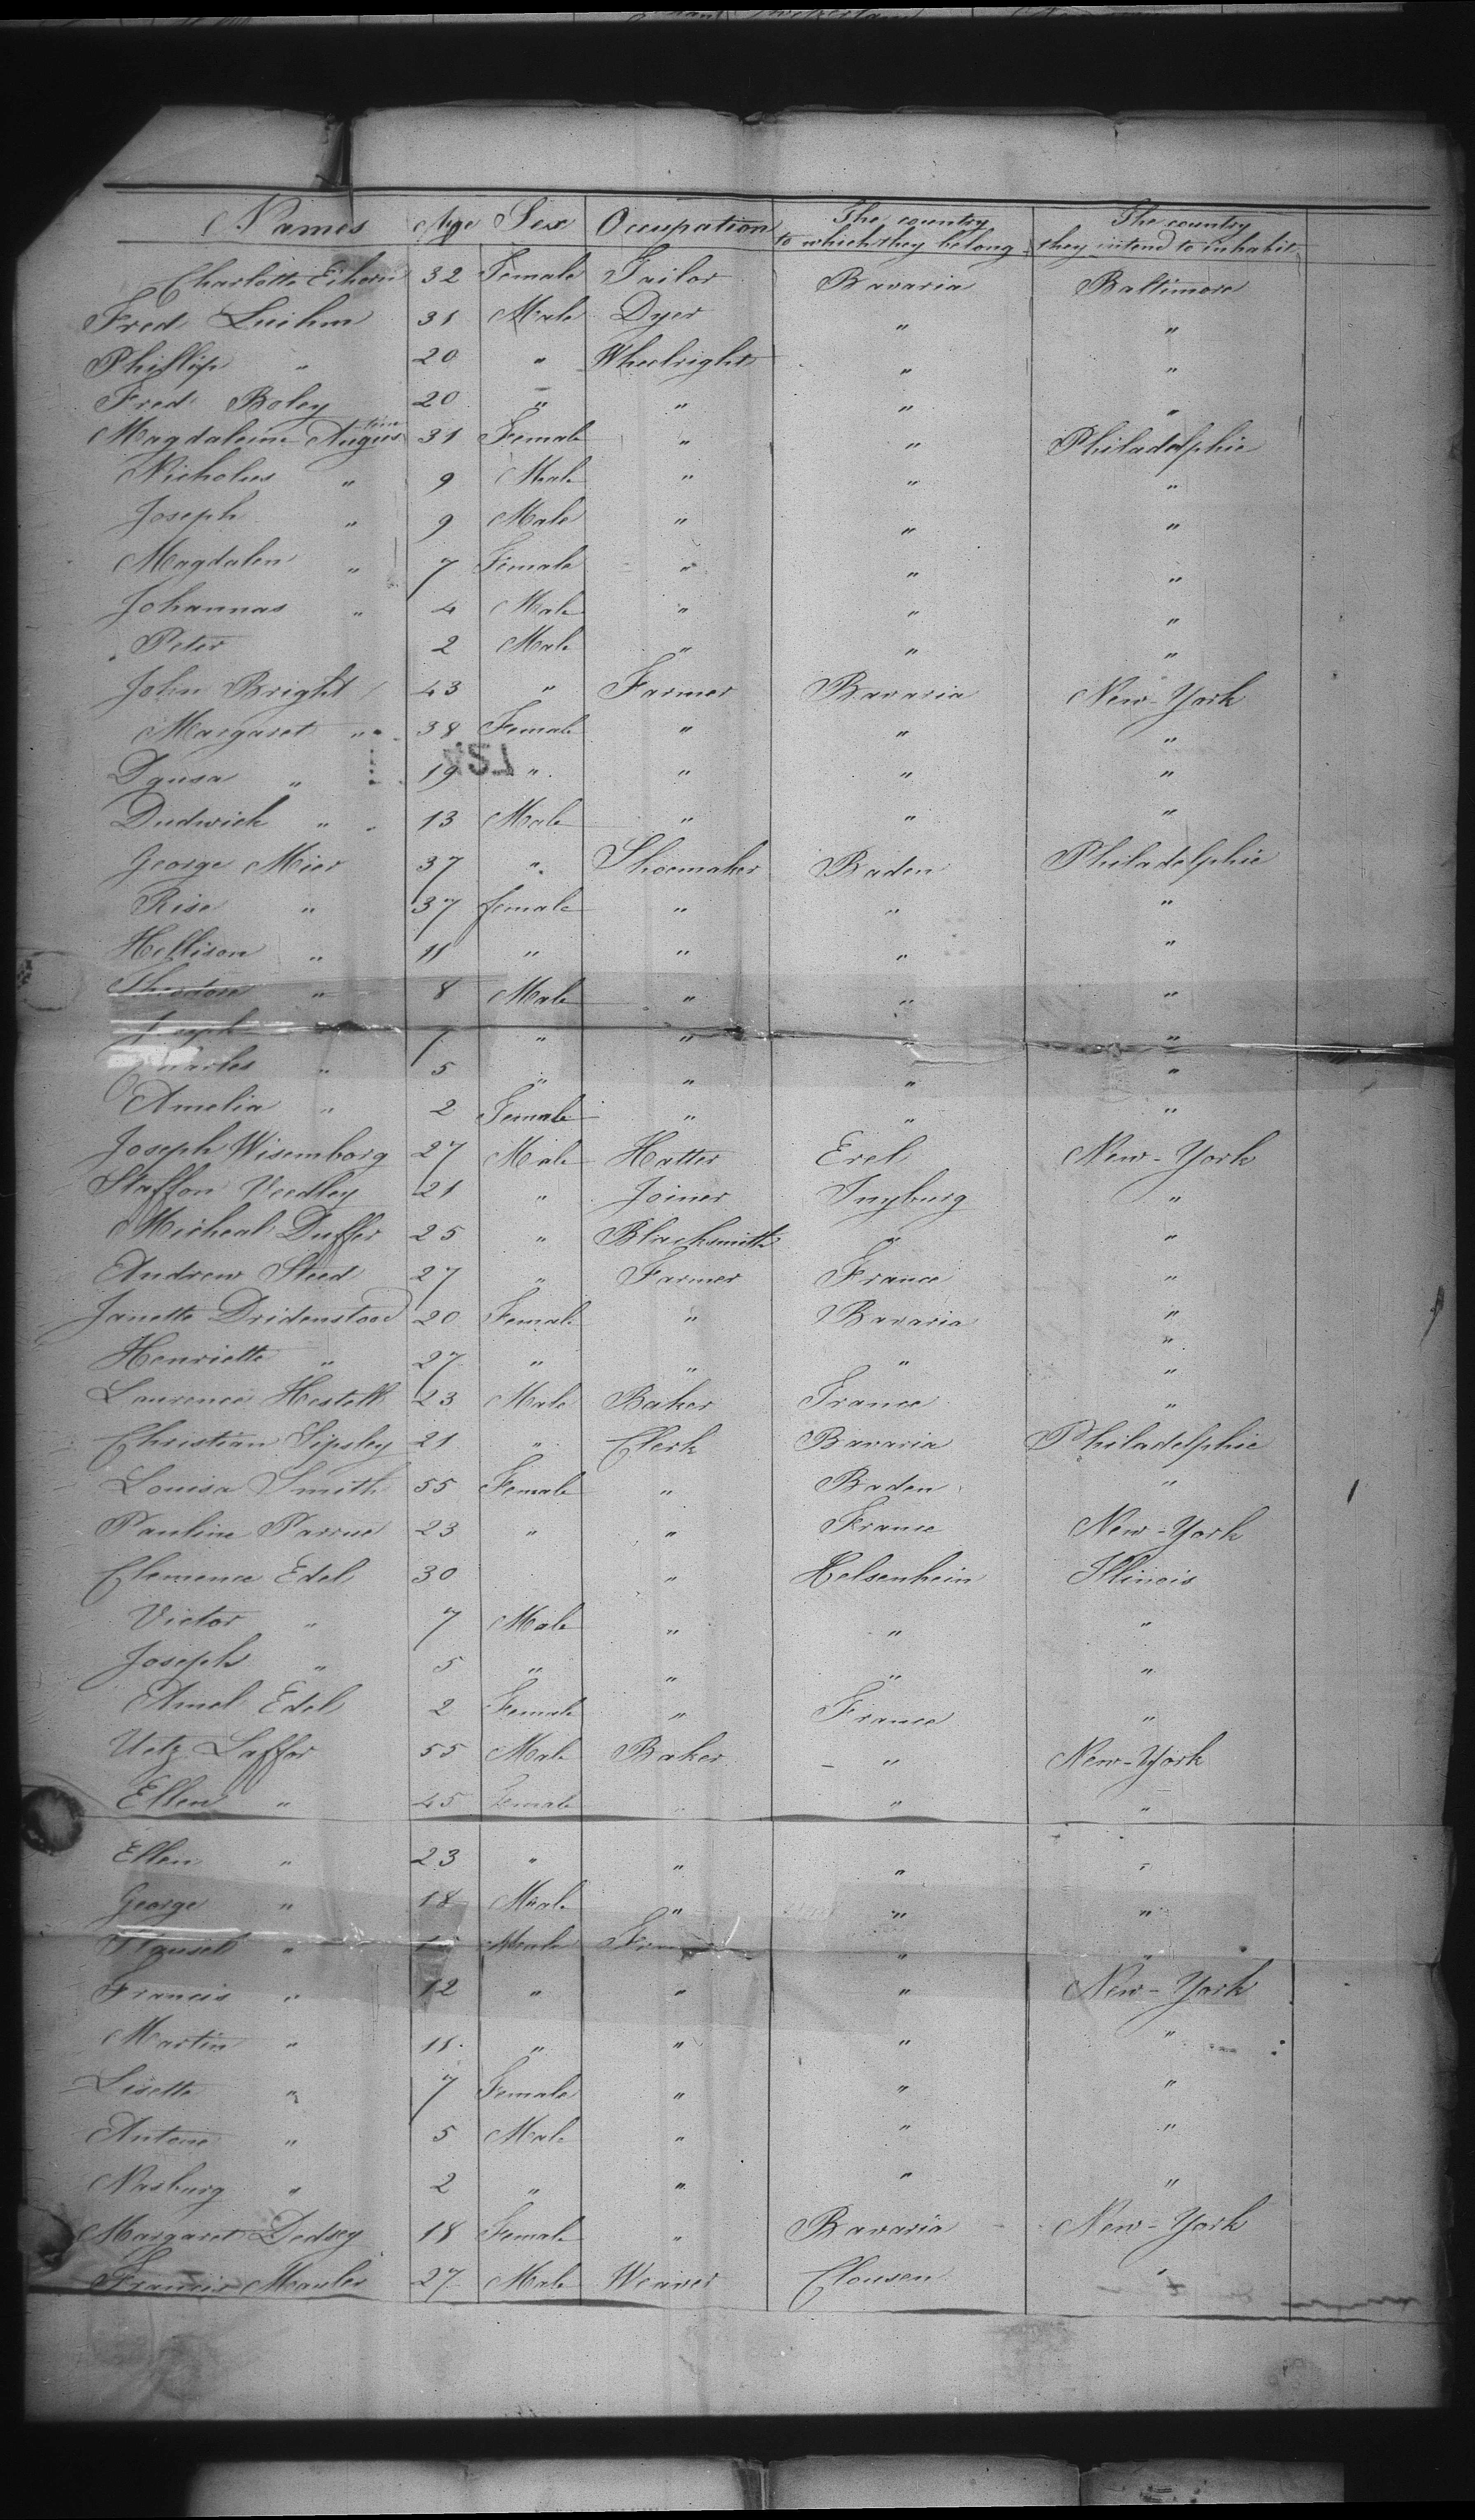 Names Age Sex Occupation The country to which they belong The country they intend to inhabit
Charlotte Eihorn 32 Female Tailor Bavaria Baltimore
Fred Luihm 31 Male Dyer " "
Phillip " 20 " Wheelright " "
Fred Boley 20 " " " "
Magdaleine Augustine 31 Female " " Philadelphie
Nicholus " 9 Male " " "
Joseph " 9 Male " " "
Magdalen " 7 Female " " "
Johannas " 4 Male " " "
Peter 2 Male " " "
John Bright 43 " Farmer Bavaria New-York
Margaret " 38 Female " " "
Dgusa " 19 " " " "
Dudwick " 13 Male " " "
George Mier 37 " Shoemaker Baden Philadelphie
Rise " 37 female " " "
Hellison " 11 " " " "
Theodore " 8 Male " " "
Joseph " 7 " " " "
Charles " 5 " " " "
Amelia " 2 Female " " "
Joseph Wisemborg 27 Male Hatter Erel New-York
Staffon Veedley 21 " Joiner Inyburg "
Micheal Duffer 25 " Blacksmith " "
Andrew Steed 27 " Farmer France "
Janette Dridenstood 20 Female " Bavaria "
"
Henriette " 27 " " " "
Laurence Hestell 23 Male Baker France "
Christian Sipsley 21 " Clerk Bavaria Philadelphie
Louisa Smith 55 Female " Baden "
Pauline Parrue 23 " " France New-York
Clemence Edel 30 " Helsenhein Illinois
Victor " 7 Male " " "
Joseph " 5 " " " "
Amel Edel 2 Female " France "
Uetz Laffor 55 Male Baker " New-York
Ellen " 45 Female " " "
Ellen " 23 " " " "
George " 18 Male " " "
" Male " "
Francis " 12 " " " New-York
Martin " 11 " " " "
Lisette " 7 Female " " "
Antone " 5 Male " " "
Nasburg " 2 " " " "
Margaret Dedsey 18 Female " Bavaria New-York
Francis Mauler 27 Male Weaver Clousen "